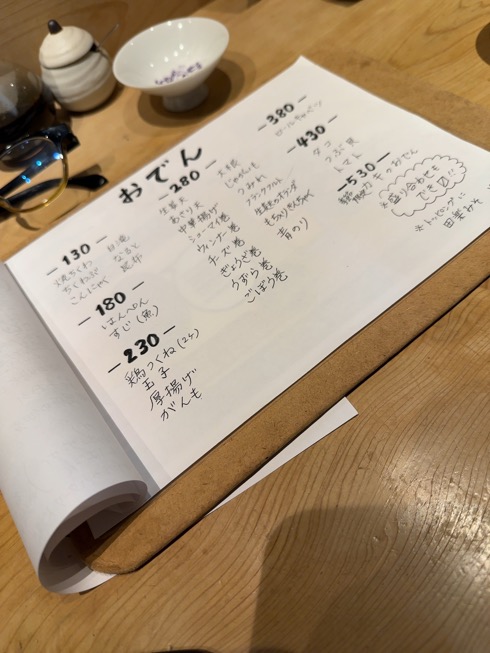 おでん
－130－
焼ちくわ
ちくわぶ
こんにゃく
白滝
なると
昆布
－180－
はんぺん
すじ(魚)
－230－
鶏つくね(2ヶ)
玉子
厚揚げ
がんも
－280－
生姜天
あさり天
中華揚げ
シューマイ巻
ウィンナー巻
チーズ巻
ぎょうざ巻
うずら巻
ごぼう巻
大根
じゃがいも
つみれ
フランクフルト
もちりちゃちゃく
青のり
－380－
ロールキャベツ
－430－
タコ
つぶ貝
トマト
－530－
牛すじ
※盛り合わせも
でき〼!!
※トッピングに
田楽みそ